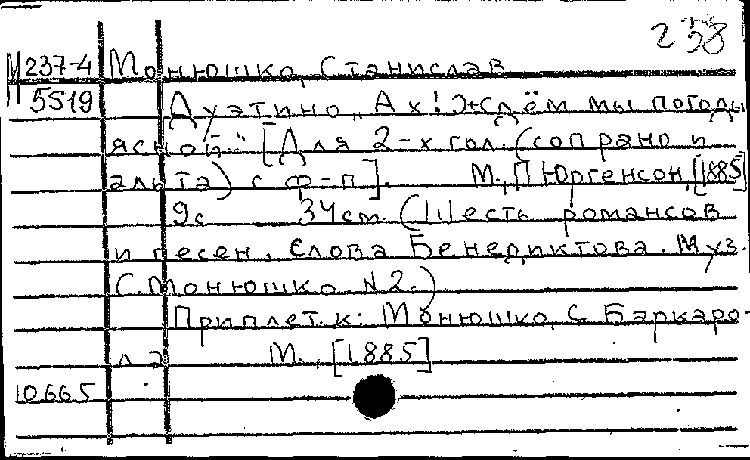 238
М 237-4 Монюшко, Станислав
5519 Дуэтино „Ах! Ждём мы погоды
ясной." [Для 2-х гол. (сопрано и
альта) с ф-п]. М., П. Юргенсон, [1885]
9с 34см. (Шесть романсов
и песен. Слова Бенедиктова. Муз.
С. Монюшко N2.)
Приплет. к: Монюшко, С. Баркаро-
ла М., [1885]
10665